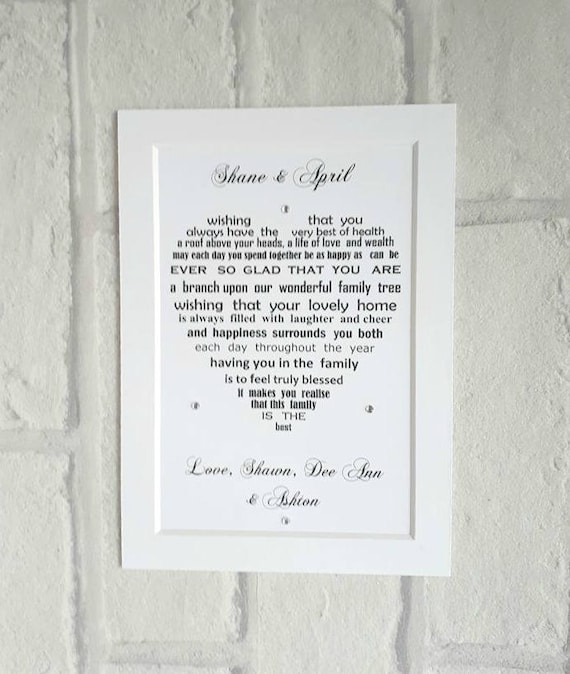 Shane & April
wishing that you
always have the very best of health
a roof above your heads, a life of love and wealth
may each day you spend together be as happy as can be
EVER SO GLAD THAT YOU ARE
a branch upon our wonderful family tree
wishing that your lovely home
is always filled with laughter and cheer
and happiness surrounds you both
each day throughout the year
having you in the family
is to feel truly blessed
it makes you realise
that this family
IS THE
best
Love, Shawn, Dee Ann
& Ashton